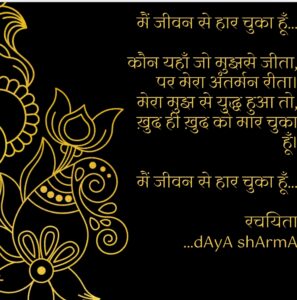 मैं जीवन से हार चुका हूँ...
कौन यहाँ जो मुझसे जीता,
पर मेरा अंतर्मन रीता।
मेरा मुझ से युद्ध हुआ तो,
ख़ुद ही ख़ुद को मार चुका
हूँ।
मैं जीवन से हार चुका हूँ...
रचयिता
...dAyA shArmA